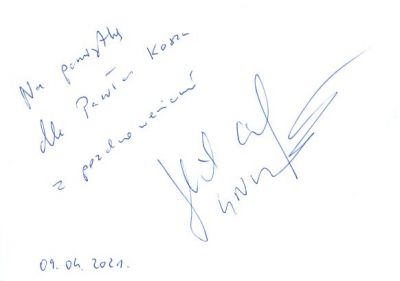 Na pamiątkę
dla Pawła Kosza
z pozdrowieniami
09.04.2021r.